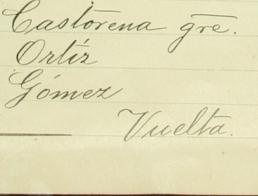 Castorena gre.
Ortiz
Gómez
Vuelta.